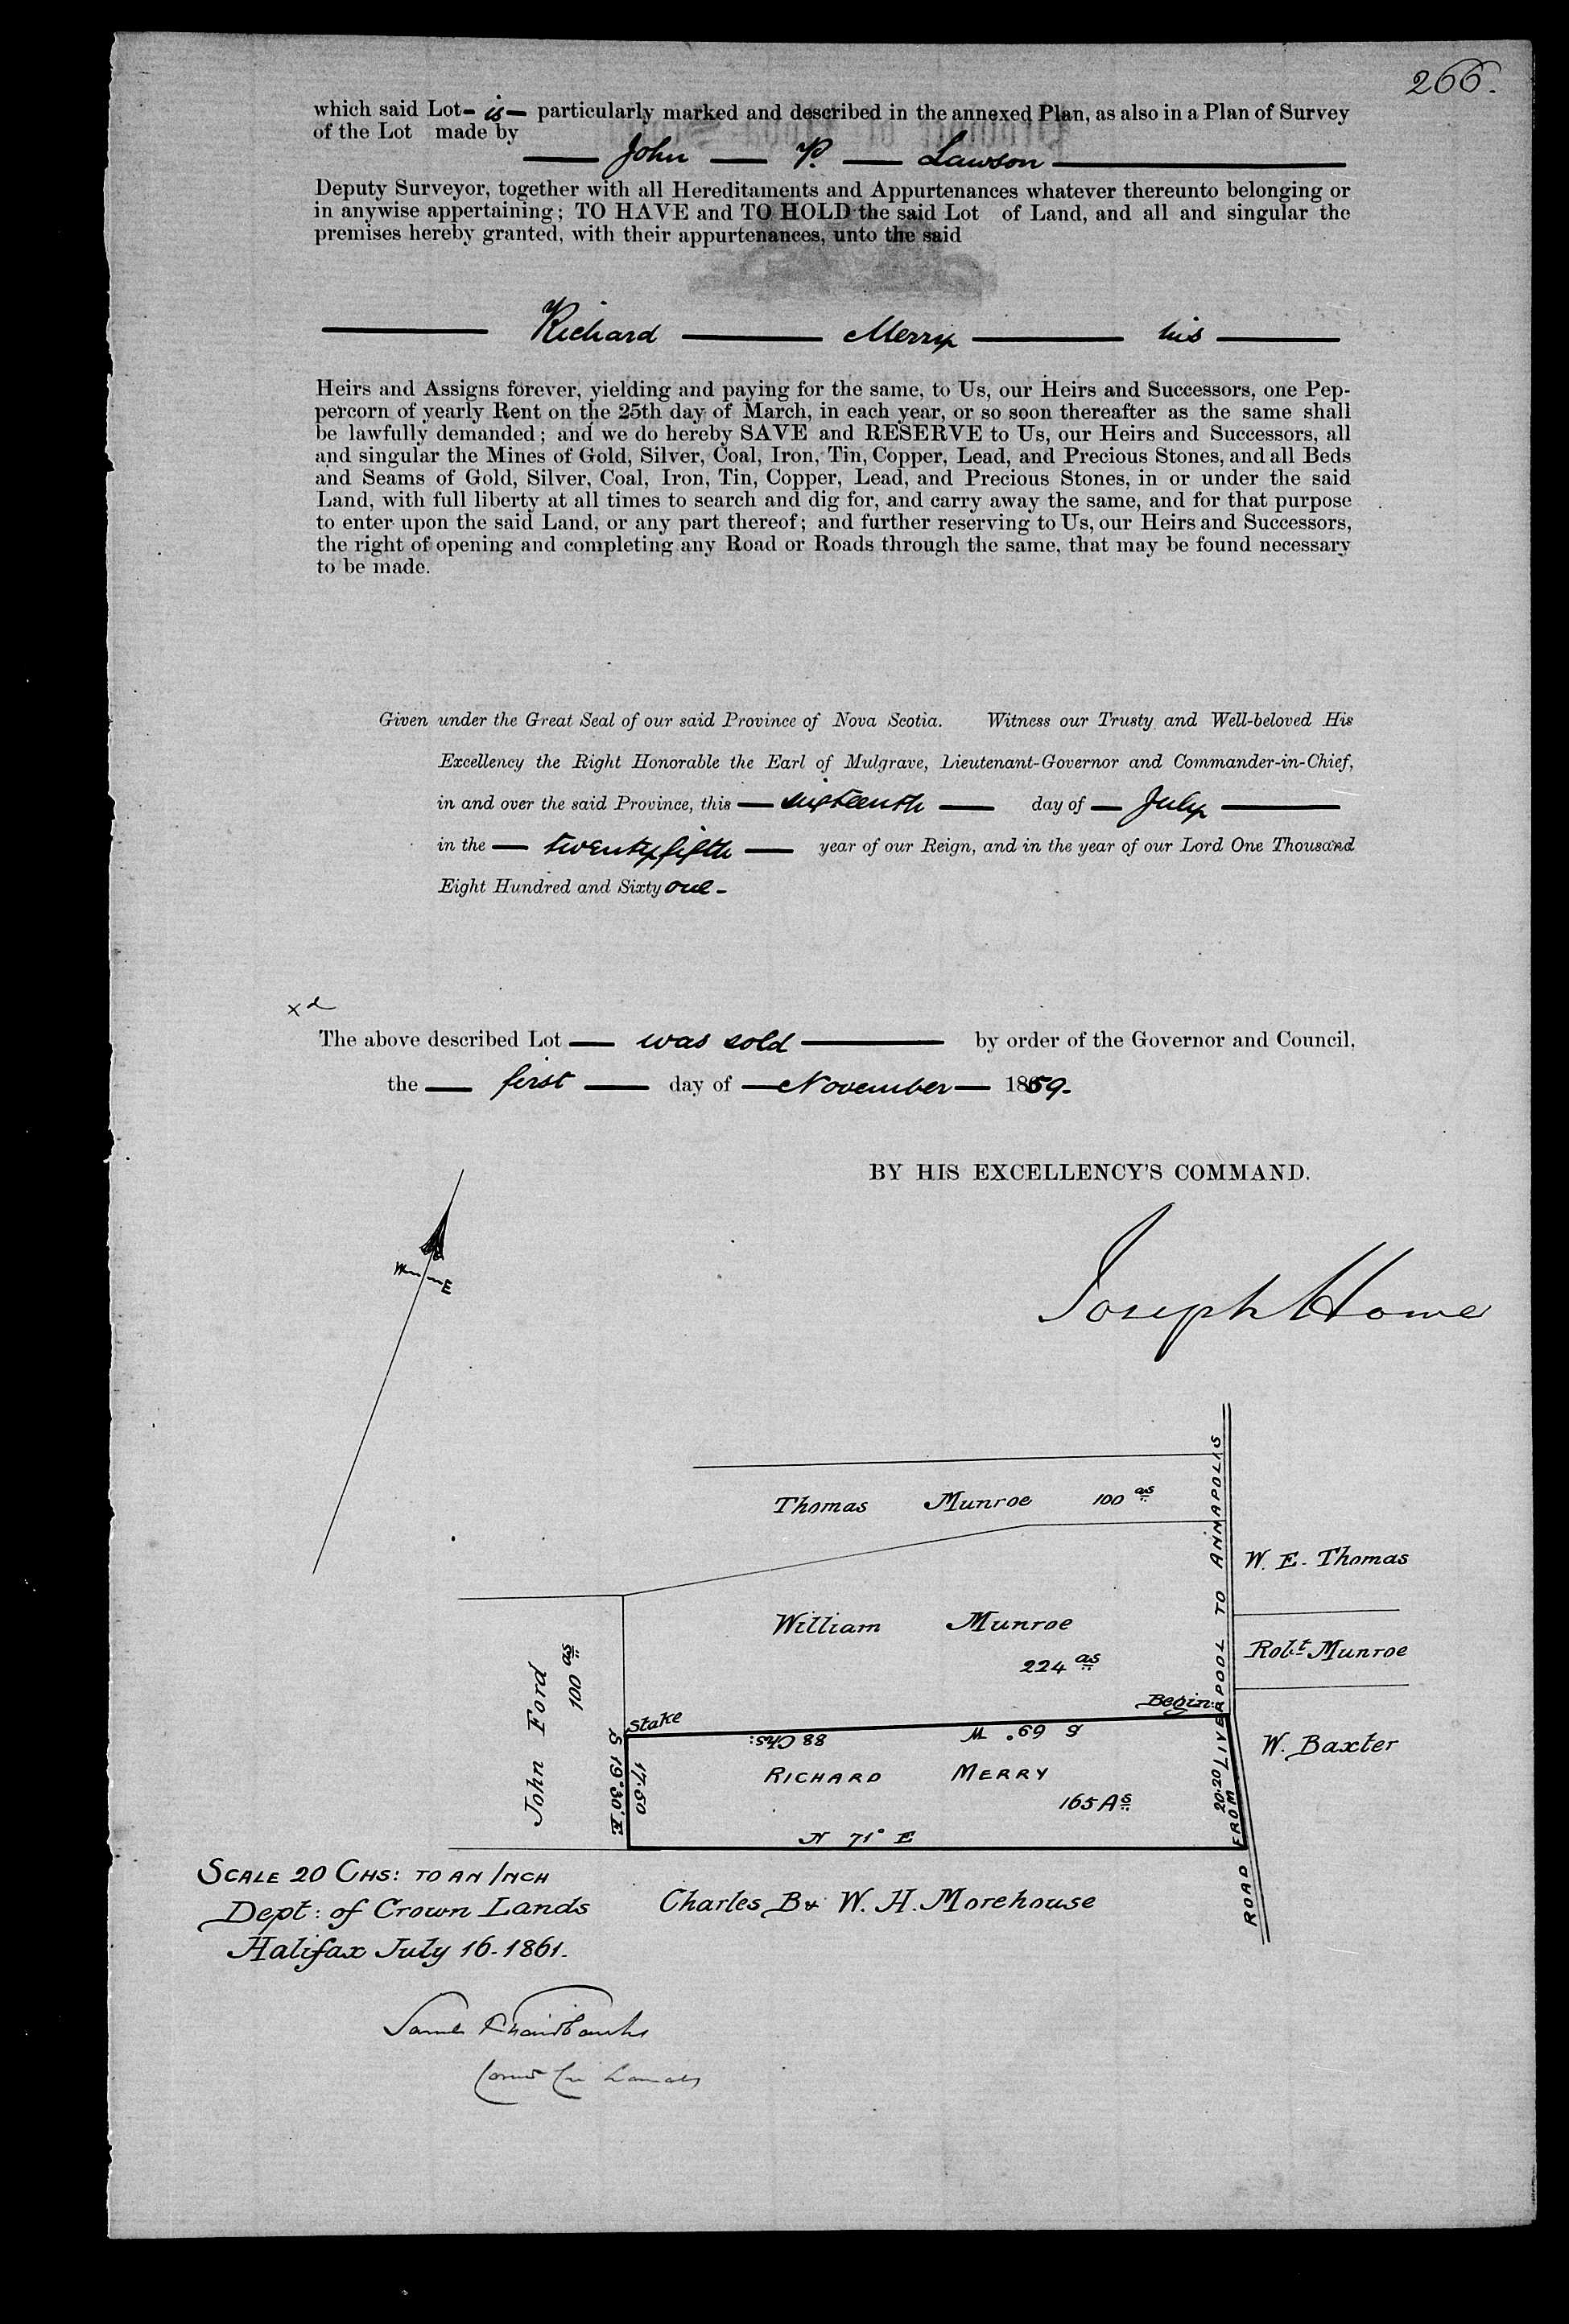 266.
which said Lot - is - particularly marked and described in the annexed Plan, as also in a Plan of Survey
of the Lot made by
John P. Lawson
Deputy Surveyor, together with all Hereditaments and Appurtenances whatever thereunto belonging or
in anywise appertaining; TO HAVE and TO HOLD the said Lot of Land, and all and singular the
premises hereby granted, with their appurtenances, unto the said
Richard Merry his
Heirs and Assigns forever, yielding and paying for the same, to Us, our Heirs and Successors, one Pep-
percorn of yearly Rent on the 25th day of March, in each year, or so soon thereafter as the same shall
be lawfully demanded; and we do hereby SAVE and RESERVE to Us, our Heirs and Successors, all
and singular the Mines of Gold, Silver, Coal, Iron, Tin, Copper, Lead, and Precious Stones, and all Beds
and Seams of Gold, Silver, Coal, Iron, Tin, Copper, Lead, and Precious Stones, in or under the said
Land, with full liberty at all times to search and dig for, and carry away the same, and for that purpose
to enter upon the said Land, or any part thereof; and further reserving to Us, our Heirs and Successors,
the right of opening and completing any Road or Roads through the same, that may be found necessary
to be made.
Given under the Great Seal of our said Province of Nova Scotia. Witness our Trusty and Well-beloved His
Excellency the Right Honorable the Earl of Mulgrave, Lieutenant-Governor and Commander-in-Chief,
in and over the said Province, this sixteenth day of July
in the twenty fifth year of our Reign, and in the year of our Lord One Thousand
Eight Hundred and Sixty one -
xd
The above described Lot was sold by order of the Governor and Council,
the first day of November 1859.
BY HIS EXCELLENCY'S COMMAND.
Joseph Howe
W E
Thomas Munroe 100 as
W. E. Thomas
William Munroe
224 as
Robt Munroe
John Ford
100 as
Stake
Begin:
S 69° W
88 Chs:
W. Baxter
RICHARD MERRY
165 As
S 19°30' E
17.50
20.20
N 71° E
ROAD FROM LIVERPOOL TO ANNAPOLIS
SCALE 20 CHS: TO AN INCH
Dept: of Crown Lands
Halifax July 16-1861.
Charles B & W. H. Morehouse
Saml P Fairbanks
Lands